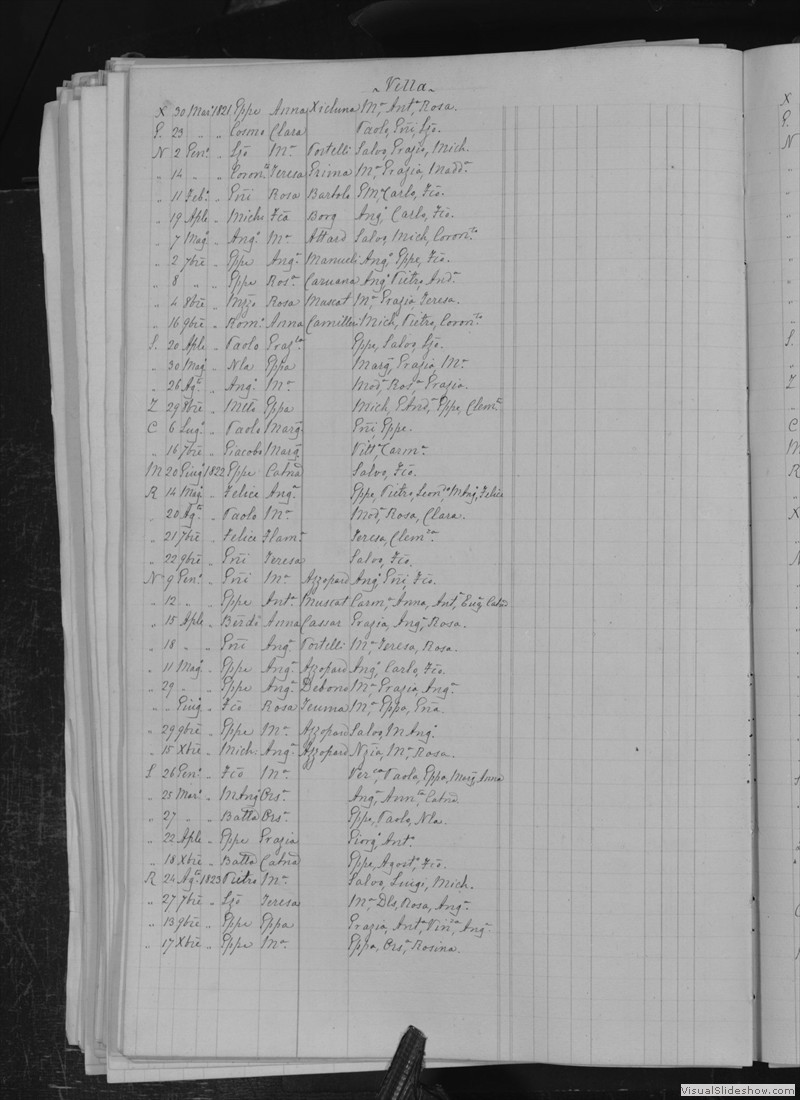 Villa
X 30 Mar° 1821 Eppe Anna Xicluna Mª Antª Rosa.
P. 23 „ „ Cosmo Clara Paolo, Eñi, Ljõ.
N 2 Gen° „ Ljõ Mª Portelli Salvo, Grazia, Mich.
„ 14 „ „ Teresa Grima Mª Grazia, Madª
„ 11 Feb° „ Eñi Rosa Bartolo Carlo, Fcõ.
„ 19 Aple „ Mich: Fcã Borg Ang° Carlo, Fcõ.
„ 7 Mag° „ Ang° Mª Attard Salvo, Mich,
„ 2 7bre „ Eppe Angª Manueli Ang° Eppe, Fcõ.
„ 8 „ „ Eppe Rosª Caruana Ang° Pietro, Andª
„ 4 8bre „ Rosa Muscat Mª Grazia, Teresa.
„ 16 9bre „ Rom° Anna Camilleri Mich, Pietro,
S. 20 Aple „ Paolo Eppe, Salvo, Ljõ.
„ 30 Mag° „ Nla Eppa Marg, Grazia, Mª
„ 26 Ag° „ Ang° Mª Rosª Grazia.
Z 29 Mttõ Eppa Mich, Eppe,
C 6 Lug° „ Paolo Marg Eñi, Eppe.
„ 16 7bre „ Giacobo Marg Carmª
M 20 Giug° 1822 Eppe Catña Salvo, Fcõ.
R 14 Mag° „ Felice Angª Eppe, Pietro, M Ang, Felice
„ 20 Ag° „ Paolo Mª Rosa, Clara.
„ 21 7bre „ Felice Flamª Teresa,
„ 22 9bre „ Eñi Teresa Salvo, Fcõ.
N 9 Gen° „ Eñi Mª Azzopard Ang° Eñi, Fcõ.
„ 12 „ „ Eppe Antª Muscat Carmª Anna, Antª Catña
„ 15 Aple „ Berdõ Anna Cassar Grazia, Angª Rosa.
„ 18 „ „ Eñi Angª Portelli Mª Teresa, Rosa.
„ 11 Mag° „ Eppe Angª Azzopard Ang° Carlo, Fcõ.
„ 29 „ „ Eppe Angª Debono Mª Grazia, Angª
„ „ Giug° „ Fcõ Rosa Teuma Mª Eppa,
„ 29 9bre „ Eppe Mª Azzopard Salvo, M Ang°
„ 15 Xbre „ Mich: Angª Azzopard Nzia, Mª Rosa.
S 26 Gen° „ Fcõ Mª Paola, Eppa, Marg, Anna
„ 25 Mar° „ M Ang° Orsª Angª Catña
„ 27 „ „ Batta Orsª Eppe, Paolo, Nla.
„ 22 Aple „ Eppe Grazia Giorg° Ant°
„ 18 Xbre „ Batta Catña Eppe, Agost° Fcõ.
R 24 Ag° 1823 Pietro Mª Salvo, Luigi, Mich.
„ 27 7bre „ Ljõ Teresa Mª Dls, Rosa, Angª
„ 13 9bre „ Eppe Eppa Grazia, Antª Angª
„ 17 Xbre „ Eppe Mª Eppa, Orsª Rosina.
X
P.
N
S.
Z
C
M
R
X
N
VisualSlideshow.com